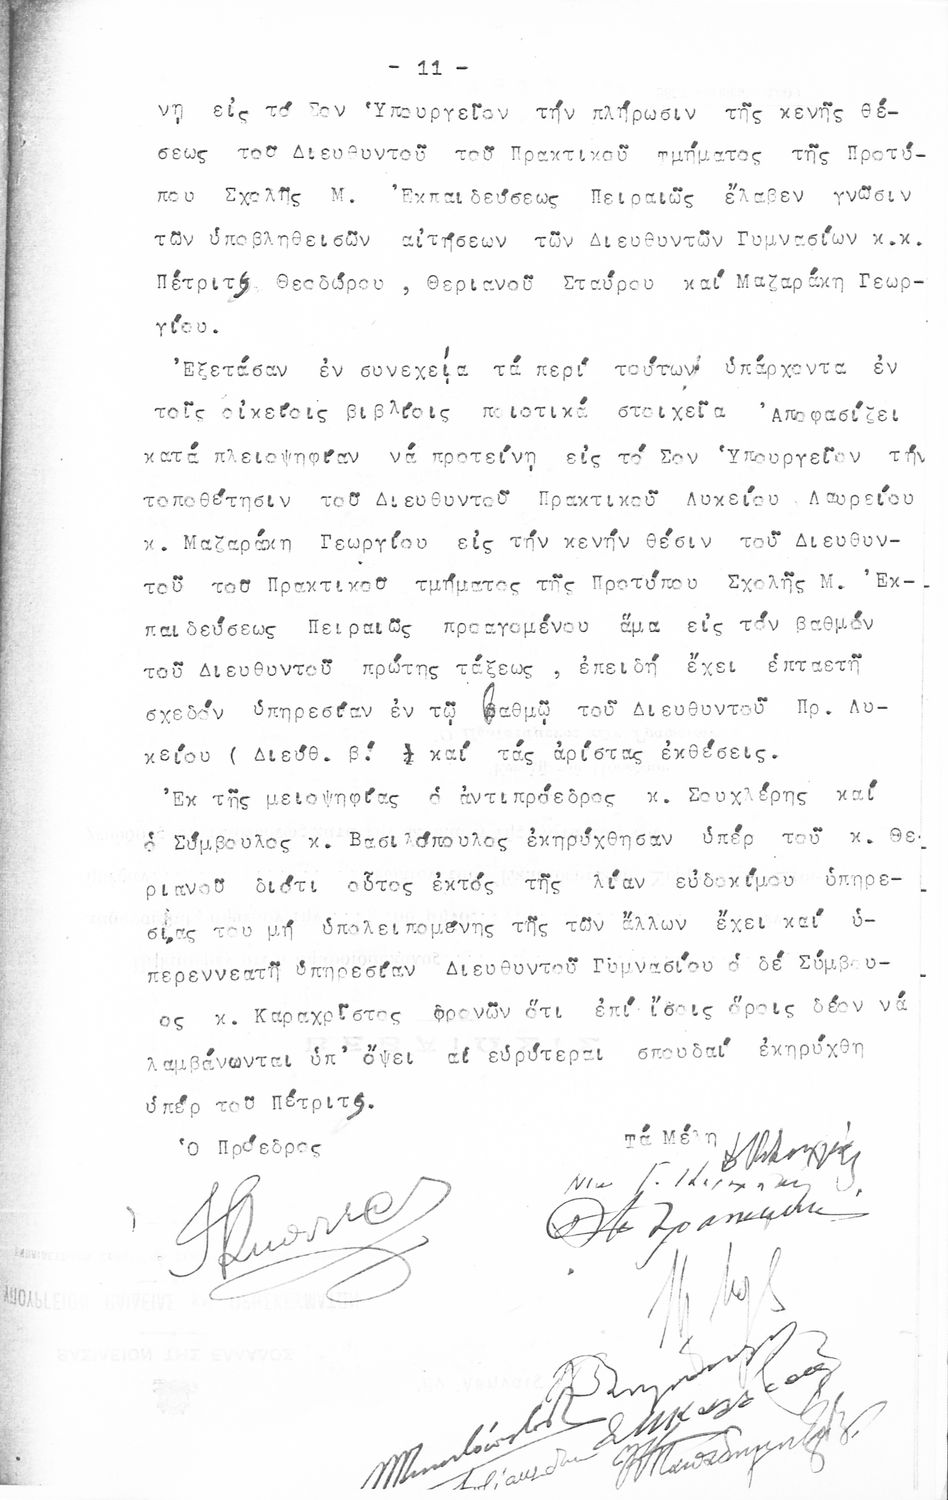 - 11 -
νῃ εἰς τό Σον Ὑπουργεῖον τήν πλήρωσιν τῆς κενῆς θέ-
σεως τοῦ Διευθυντοῦ τοῦ Πρακτικοῦ τμήματος τῆς Προτύ-
που Σχολῆς Μ. Ἐκπαιδεύσεως Πειραιῶς ἔλαβεν γνῶσιν
τῶν ὑποβληθεισῶν αἰτήσεων τῶν Διευθυντῶν Γυμνασίων κ.κ.
Πέτριτς Θεοδώρου , Θεριανοῦ Σταύρου καί Μαζαράκη Γεωρ-
γίου.
Ἐξετάσαν ἐν συνεχεία τά περί τούτων ὑπάρχοντα ἐν
τοῖς οἰκείοις βιβλίοις ποιοτικά στοιχεῖα Ἀποφασίζει
κατά πλειοψηφίαν νά προτείνῃ εἰς τό Σον Ὑπουργεῖον τήν
τοποθέτησιν τοῦ Διευθυντοῦ Πρακτικοῦ Λυκείου Λαυρείου
κ. Μαζαράκη Γεωργίου εἰς τήν κενήν θέσιν τοῦ Διευθυν-
τοῦ τοῦ Πρακτικοῦ τμήματος τῆς Προτύπου Σχολῆς Μ. Ἐκ-
παιδεύσεως Πειραιῶς προαγομένου ἅμα εἰς τόν βαθμόν
τοῦ Διευθυντοῦ πρώτης τάξεως , ἐπειδή ἔχει ἑπταετῆ
σχεδόν ὑπηρεσίαν ἐν τῷ βαθμῷ τοῦ Διευθυντοῦ Πρ. Λυ-
κείου ( Διευθ. β! ) καί τάς ἀρίστας ἐκθέσεις.
Ἐκ τῆς μειοψηφίας ὁ ἀντιπρόεδρος κ. Σουχλέρης καί
ὁ Σύμβουλος κ. Βασιλόπουλος ἐκηρύχθησαν ὑπέρ τοῦ κ. Θε-
ριανοῦ διότι οὗτος ἐκτός τῆς λίαν εὐδοκίμου ὑπηρε-
σίας του μή ὑπολειπομένης τῆς τῶν ἄλλων ἔχει καί ὑ-
περεννεατῆ ὑπηρεσίαν Διευθυντοῦ Γυμνασίου ὁ δέ Σύμβου-
ος κ. Καραχρῖστος φρονῶν ὅτι ἐπί ἴσοις ὅροις δέον νά
λαμβάνωνται ὑπ' ὄψει αἱ εὐρύτεραι σπουδαί ἐκηρύχθη
ὑπέρ τοῦ Πέτριτς.
Ὁ Πρόεδρος Τά Μέλη